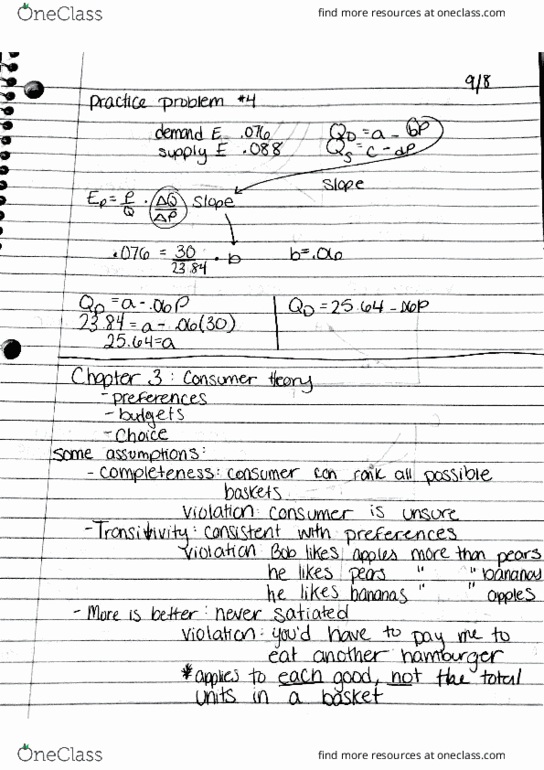 OneClass
find more resources at oneclass.com
9/8
Practice problem #4
demand E .076
supply E .088
QD = a - bP
QS = c - dP
slope
Ep = P/Q · ΔQ/ΔP slope
.076 = 30/23.84 · b
b = .06
QD = a - .06P
23.84 = a - .06(30)
25.64 = a
QD = 25.64 - .06P
Chapter 3: Consumer theory
- preferences
- budgets
- choice
some assumptions:
- completeness: consumer can rank all possible
baskets
violation: consumer is unsure
- Transitivity: consistent with preferences
violation: Bob likes apples more than pears
he likes pears " " bananas
he likes bananas " " apples
- More is better: never satiated
violation: you'd have to pay me to
eat another hamburger
*applies to each good, not the total
units in a basket
OneClass
find more resources at oneclass.com